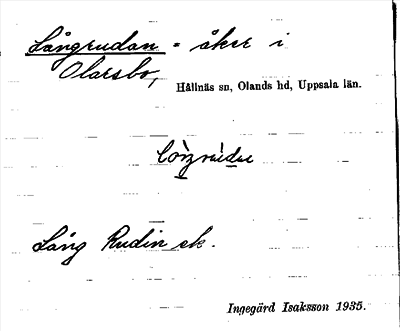 Långrudan = åker i
Olarsbo,
Hållnäs sn, Olands hd, Uppsala län.
Lång Rudin sk.
Ingegärd Isaksson 1935.